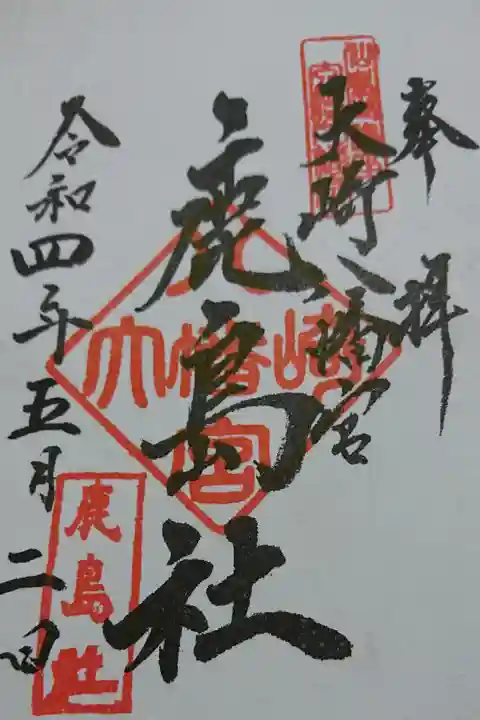 奉拝
大崎八幡宮
鹿島社
令和四年五月二日
鹿島社